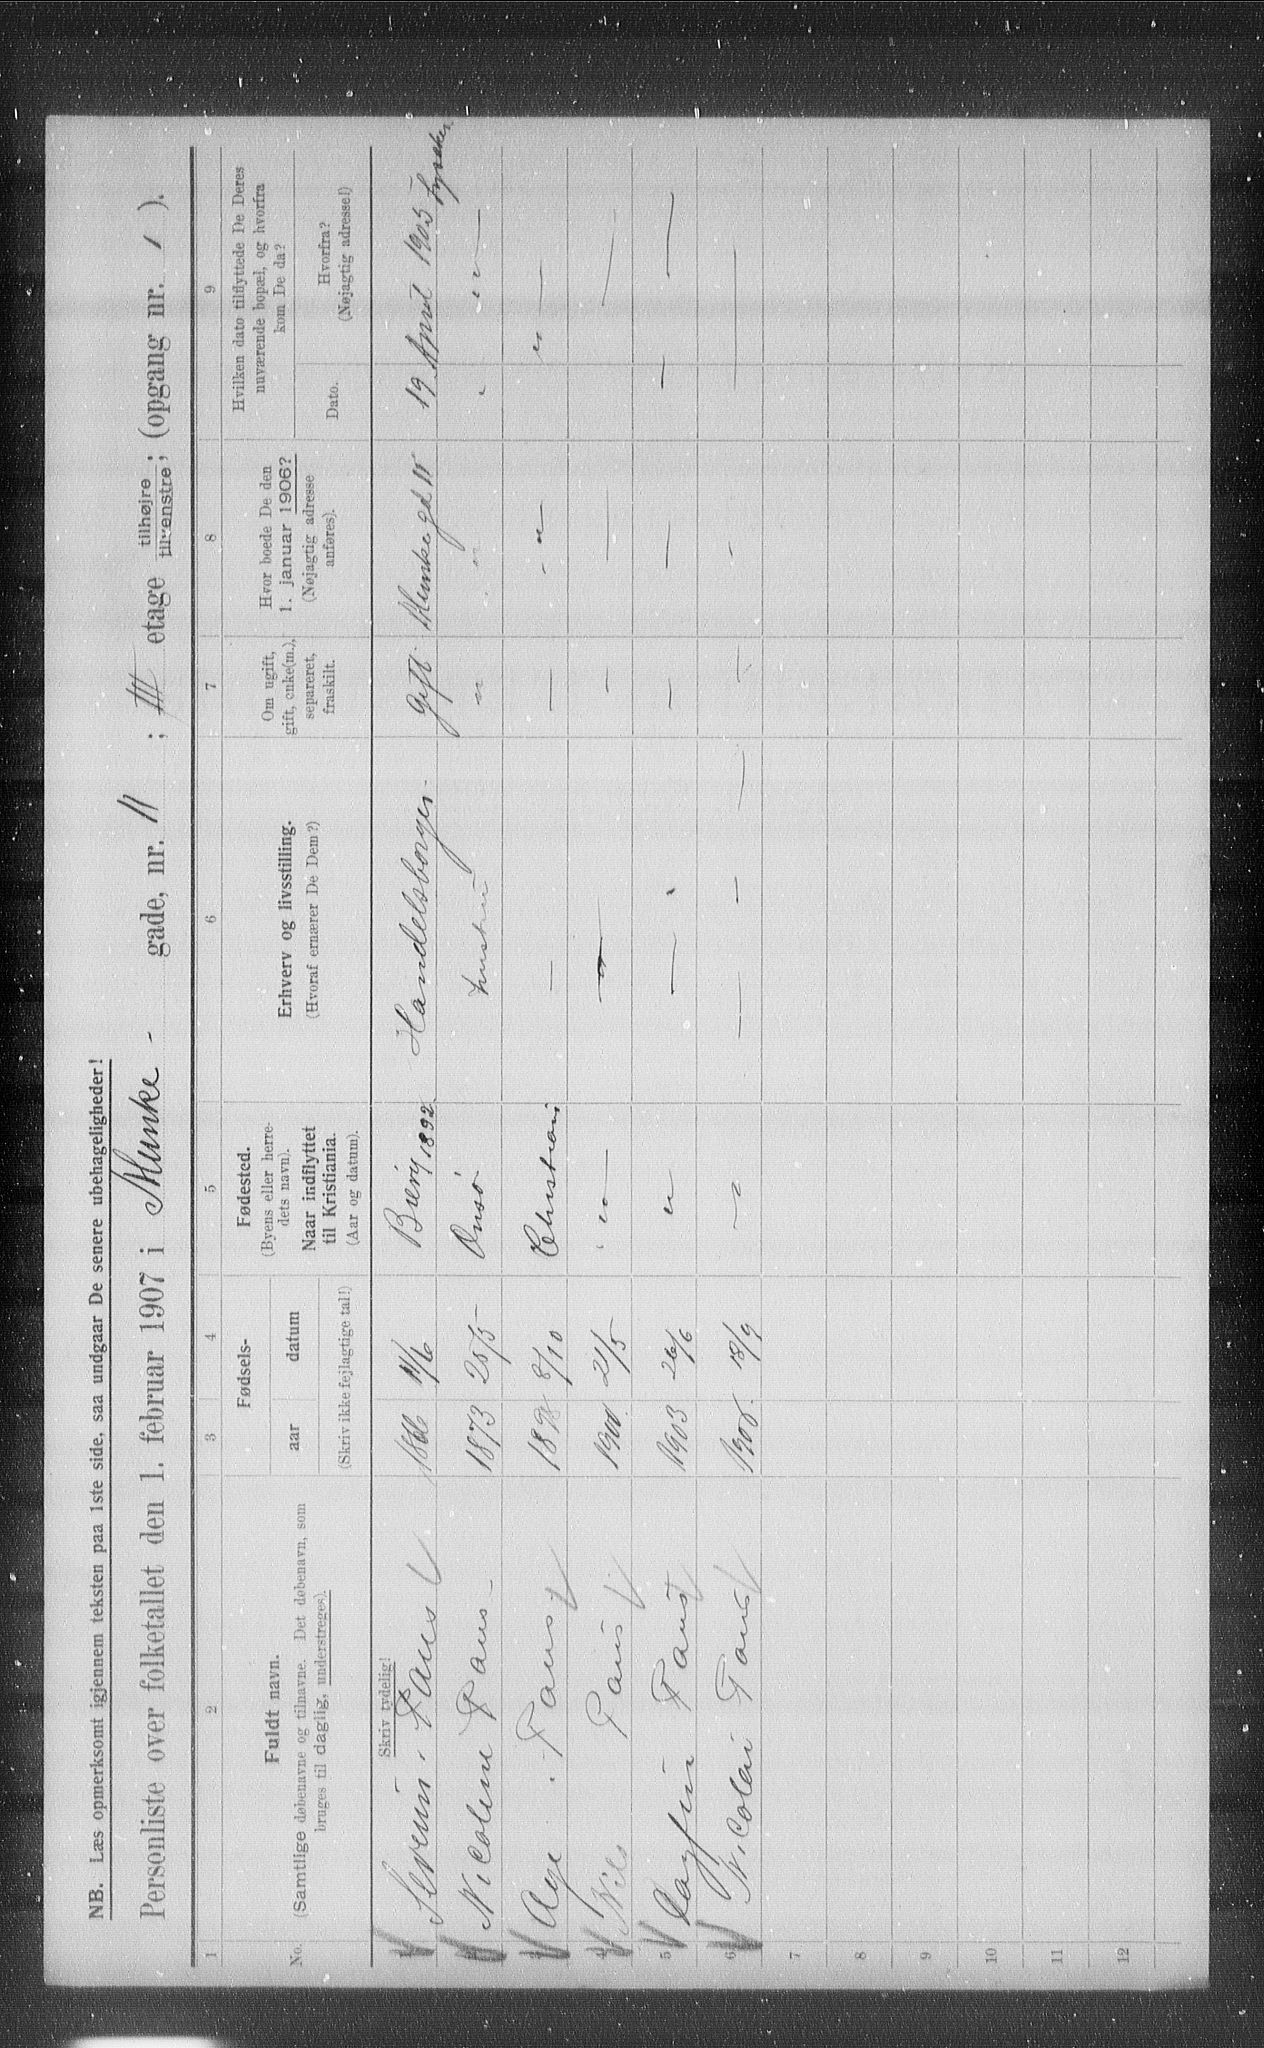 NB. Læs opmerksomt igjennem teksten paa 1ste side, saa undgaar De senere ubehageligheder!
Personliste over folketallet den 1. februar 1907 i Munke- gade, nr. 11; III etage tilhøjre tilvenstre; (opgang nr. 1).
1 2 3 4 5 6 7 8 9
No.
Fuldt navn.
(Samtlige døbenavne og tilnavne. Det døbenavn, som
bruges til daglig, understreges).
Fødsels-
aar datum
(Skriv ikke fejlagtige tal!)
Fødested.
(Byens eller herre-
dets navn).
Naar indflyttet
til Kristiania.
(Aar og datum).
Erhverv og livsstilling.
(Hvoraf ernærer De Dem?)
Om ugift,
gift, enke(m.),
separeret,
fraskilt.
Hvor boede De den
1. januar 1906?
(Nøjagtig adresse
anføres).
Hvilken dato tilflyttede De Deres
nuværende bopæl, og hvorfra
kom De da?
Dato.
Hvorfra?
(Nøjagtig adresse!)
Skriv tydelig!
1 Paus 1866 11/6 1892 Handelsborger Gift Munkegd 11 19 April 1905 Lysaker
2 Nicoline Paus 1873 25/5 Onsø hustru " " "
3 Age Paus 1898 8/10 — — " "
4 Nils Paus 21/5 " — — — —
5 Dagfin Paus 1903 26/6 " — — — — —
6 Nicolai Paus 18/9 " — — — — —
7
8
9
10
11
12